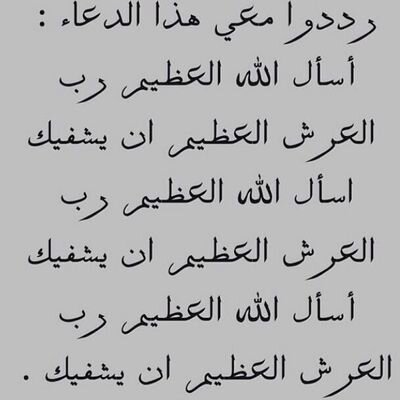 رددوا معي هذا الدعاء :
أسأل الله العظيم رب
العرش العظيم ان يشفيك
اسأل الله العظيم رب
العرش العظيم ان يشفيك
أسأل الله العظيم رب
العرش العظيم ان يشفيك .